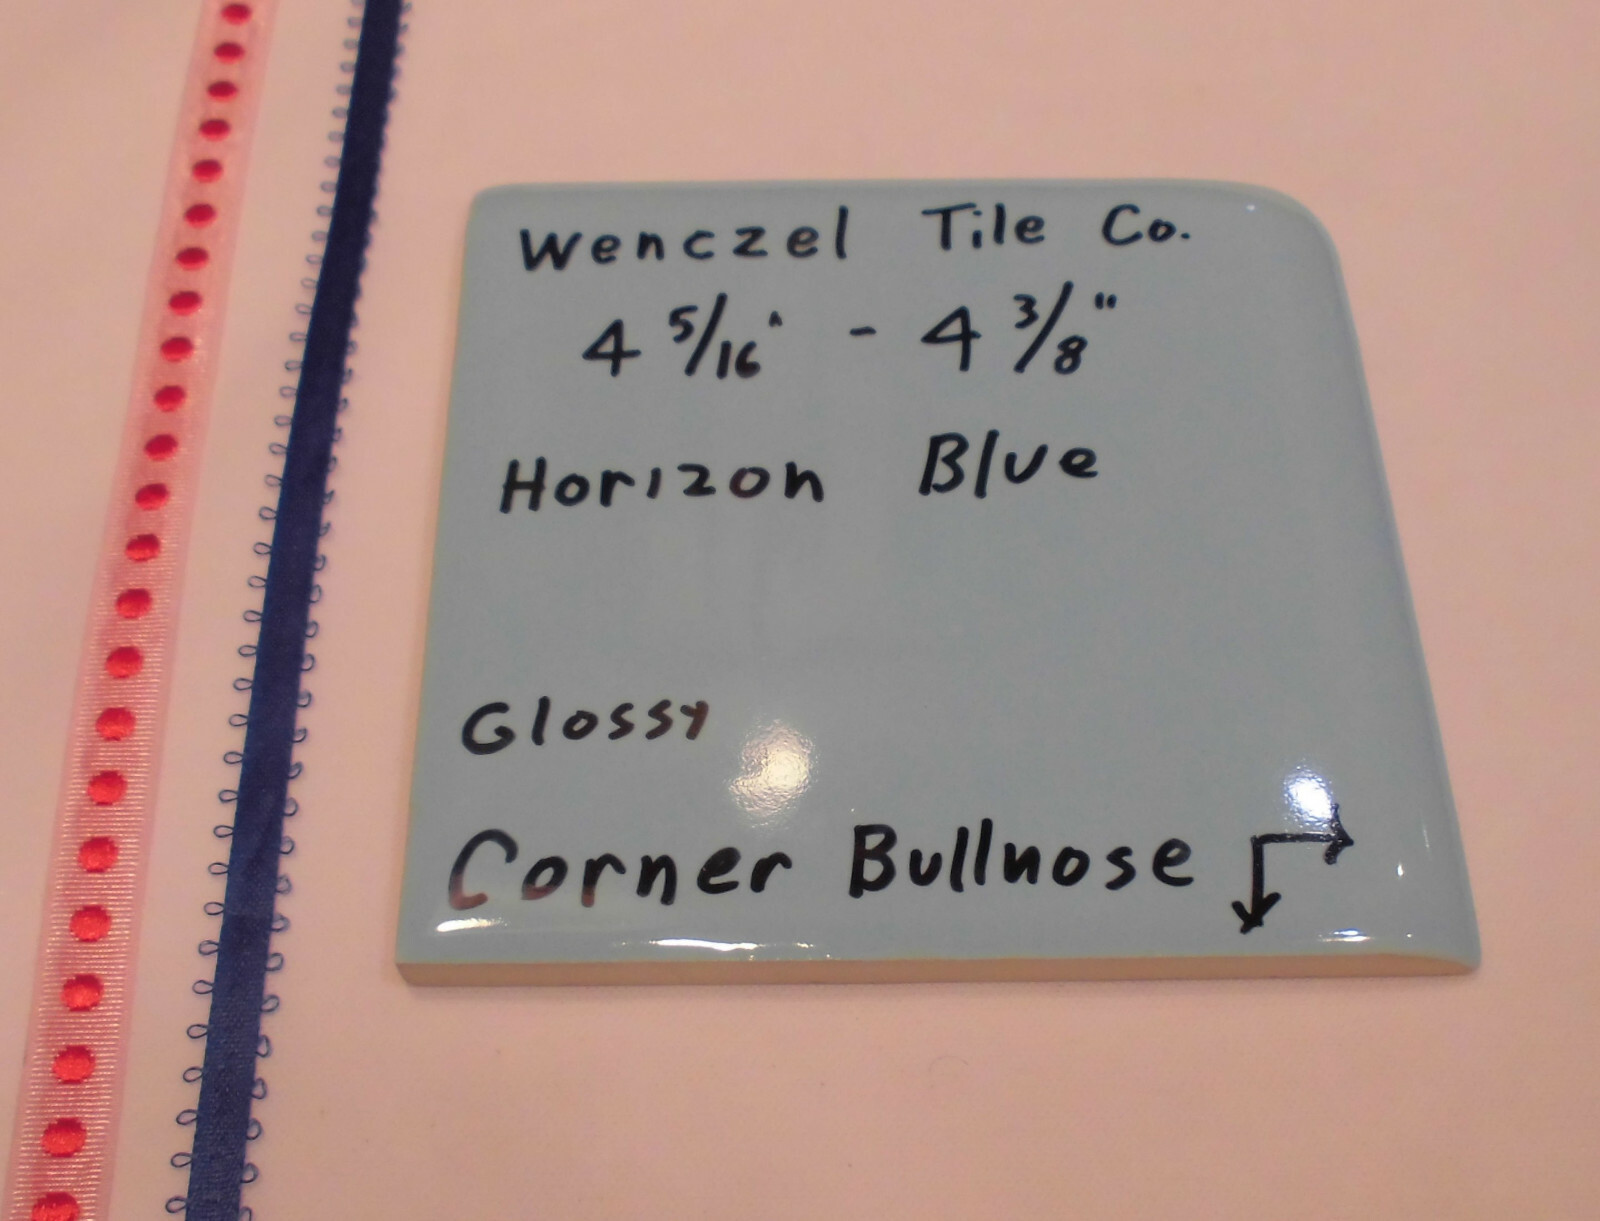 Wenczel Tile Co.
4 5/16" - 4 3/8"
Horizon Blue
Glossy
Corner Bullnose